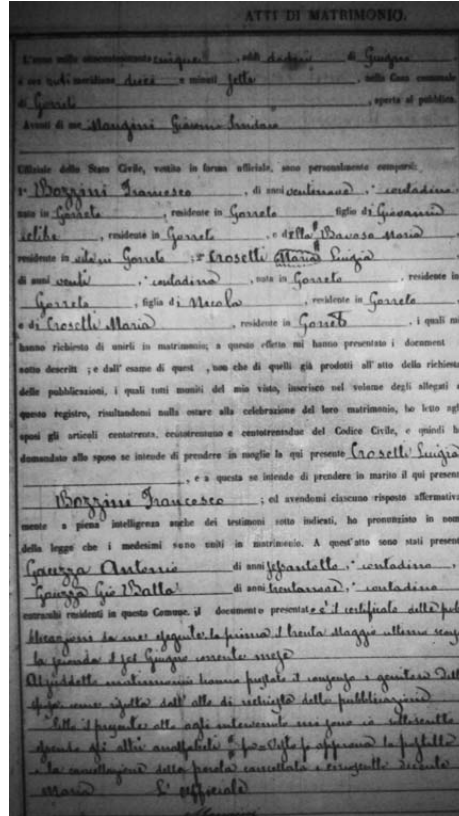 ATTI DI MATRIMONIO.
L'anno mille ottocentosessantacinque, addì dodici di Giugno
a ore antimeridiane dieci e minuti sette, nella Casa comunale
di Gorreto, aperta al pubblico.
Avanti di me Mangini Giacomo Sindaco
Uffiziale dello Stato Civile, vestito in forma ufficiale, sono personalmente comparsi:
1° Bozzini Francesco, di anni ventinove, contadino,
nato in Gorreto, residente in Gorreto figlio di Giovanni
, residente in Gorreto, e della Maria
residente in Gorreto; 2° Croselli Maria Luigia
di anni venti, contadina, nata in Gorreto, residente in
Gorreto, figlia di Nicola, residente in Gorreto
e di Croselli Maria, residente in Gorreto, i quali mi
hanno richiesto di unirli in matrimonio; a questo effetto mi hanno presentato i document
sotto descritt; e dall'esame di quest, non che di quelli già prodotti all'atto della richiesta
delle pubblicazioni, i quali tutti muniti del mio visto, inserisco nel volume degli allegati a
questo registro, risultandomi nulla ostare alla celebrazione del loro matrimonio, ho letto agli
sposi gli articoli centotrenta, centotrentuno e centotrentadue del Codice Civile, e quindi ho
domandato allo sposo se intende di prendere in moglie la qui presente Croselli Luigia
, e a questa se intende di prendere in marito il qui present
Bozzini Francesco; ed avendomi ciascuno risposto affermativa
mente a piena intelligenza anche dei testimoni sotto indicati, ho pronunziato in nome
della legge che i medesimi sono uniti in matrimonio. A quest'atto sono stati present
Gauzza Antonio di anni sessantotto, contadino,
Gauzza Gio Batta di anni trentanove, contadino
entrambi residenti in questo Comune. il documento presentato è il certificato delle pub
blicazioni da me eseguite la prima il trenta Maggio ultimo scorso
la seconda il sei Giugno corrente mese
Al suddetto matrimonio hanno prestato il consenso i genitori della
sposa come risulta dall'atto di richiesta della pubblicazione
Letto il presente atto agli intervenuti mi sono io sottoscritto
essendo gli altri analfabeti si approva la postilla
e la cancellazione della parola cancellata
Maria L'ufficiale